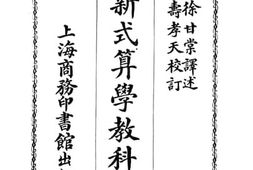 徐甘棠譯述
壽孝天校訂
新式算學教科
上海商務印書館出